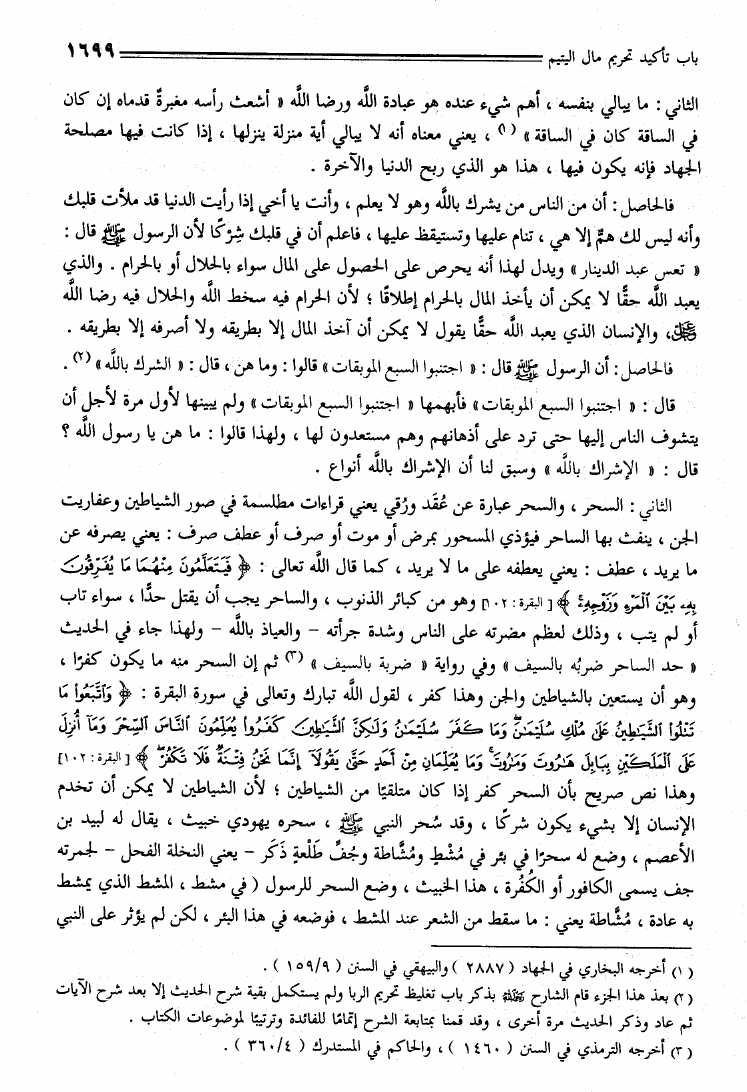 باب تأكيد تحريم مال اليتيم ١٦٩٩
الثاني : ما يبالي بنفسه ، أهم شيء عنده هو عبادة اللَّه ورضا اللَّه « أشعث رأسه مغبرةٌ قدماه إن كان
في الساقة كان في الساقة » (١) ، يعني معناه أنه لا يبالي أية منزلة ينزلها ، إذا كانت فيها مصلحة
الجهاد فإنه يكون فيها ، هذا هو الذي ربح الدنيا والآخرة .
فالحاصل : أن من الناس من يشرك باللَّه وهو لا يعلم ، وأنت يا أخي إذا رأيت الدنيا قد ملأت قلبك
وأنه ليس لك همٌّ إلا هي ، تنام عليها وتستيقظ عليها ، فاعلم أن في قلبك شِرْكًا لأن الرسول ﷺ قال :
« تعس عبد الدينار » ويدل لهذا أنه يحرص على الحصول على المال سواء بالحلال أو بالحرام . والذي
يعبد اللَّه حقًّا لا يمكن أن يأخذ المال بالحرام إطلاقًا ؛ لأن الحرام فيه سخط اللَّه والحلال فيه رضا اللَّه
، والإنسان الذي يعبد اللَّه حقًّا يقول لا يمكن أن آخذ المال إلا بطريقه ولا أصرفه إلا بطريقه .
فالحاصل : أن الرسول ﷺ قال : « اجتنبوا السبع الموبقات » قالوا : وما هن ، قال : « الشرك باللَّه » (٢) .
قال : « اجتنبوا السبع الموبقات » فأبهمها « اجتنبوا السبع الموبقات » ولم يبينها لأول مرة لأجل أن
يتشوف الناس إليها حتى ترد على أذهانهم وهم مستعدون لها ، ولهذا قالوا : ما هن يا رسول اللَّه ؟
قال : « الإشراك باللَّه » وسبق لنا أن الإشراك باللَّه أنواع .
الثاني : السحر ، والسحر عبارة عن عُقَد ورُقي يعني قراءات مطلسمة في صور الشياطين وعفاريت
الجن ، ينفث بها الساحر فيؤذي المسحور بمرض أو موت أو صرف أو عطف صرف : يعني يصرفه عن
ما يريد ، عطف : يعني يعطفه على ما لا يريد ، كما قال اللَّه تعالى : ﴿ فَيَتَعَلَّمُونَ مِنْهُمَا مَا يُفَرِّقُونَ
بِهِۦ بَيْنَ ٱلْمَرْءِ وَزَوْجِهِۦ ﴾ [ البقرة : ١٠٢] وهو من كبائر الذنوب ، والساحر يجب أن يقتل حدًّا ، سواء تاب
أو لم يتب ، وذلك لعظم مضرته على الناس وشدة جرأته - والعياذ باللَّه - ولهذا جاء في الحديث
« حد الساحر ضربُه بالسيف » وفي رواية « ضربة بالسيف » (٣) ثم إن السحر منه ما يكون كفرًا ،
وهو أن يستعين بالشياطين والجن وهذا كفر ، لقول اللَّه تبارك وتعالى في سورة البقرة : ﴿ وَٱتَّبَعُوا۟ مَا
تَتْلُوا۟ ٱلشَّيَٰطِينُ عَلَىٰ مُلْكِ سُلَيْمَٰنَ وَمَا كَفَرَ سُلَيْمَٰنُ وَلَٰكِنَّ ٱلشَّيَٰطِينَ كَفَرُوا۟ يُعَلِّمُونَ ٱلنَّاسَ ٱلسِّحْرَ وَمَآ أُنزِلَ
عَلَى ٱلْمَلَكَيْنِ بِبَابِلَ هَٰرُوتَ وَمَٰرُوتَ وَمَا يُعَلِّمَانِ مِنْ أَحَدٍ حَتَّىٰ يَقُولَآ إِنَّمَا نَحْنُ فِتْنَةٌ فَلَا تَكْفُرْ ﴾ [البقرة: ١٠٢]
وهذا نص صريح بأن السحر كفر إذا كان متلقيًا من الشياطين ؛ لأن الشياطين لا يمكن أن تخدم
الإنسان إلا بشيء يكون شركًا ، وقد سُحر النبي ﷺ ، سحره يهودي خبيث ، يقال له لبيد بن
الأعصم ، وضع له سحرًا في بئر في مُشْطٍ ومُشَّاطة وجُفِّ طَلْعةِ ذَكَر - يعني النخلة الفحل - لجمرته
جف يسمى الكافور أو الكُفُرة ، هذا الخبيث ، وضع السحر للرسول ( في مشط ، المشط الذي يمشط
به عادة ، مُشَّاطة يعني : ما سقط من الشعر عند المشط ، فوضعه في هذا البئر ، لكن لم يؤثر على النبي
(١) أخرجه البخاري في الجهاد ( ٢٨٨٧ ) والبيهقي في السنن ( ١٥٩/٩ ) .
(٢) بعد هذا الجزء قام الشارح بذكر باب تغليظ تحريم الربا ولم يستكمل بقية شرح الحديث إلا بعد شرح الآيات
ثم عاد وذكر الحديث مرة أخرى ، وقد قمنا بمتابعة الشرح إتمامًا للفائدة وترتيبًا لموضوعات الكتاب .
(٣) أخرجه الترمذي في السنن ( ١٤٦٠ ) ، والحاكم في المستدرك ( ٣٦٠/٤ ) .